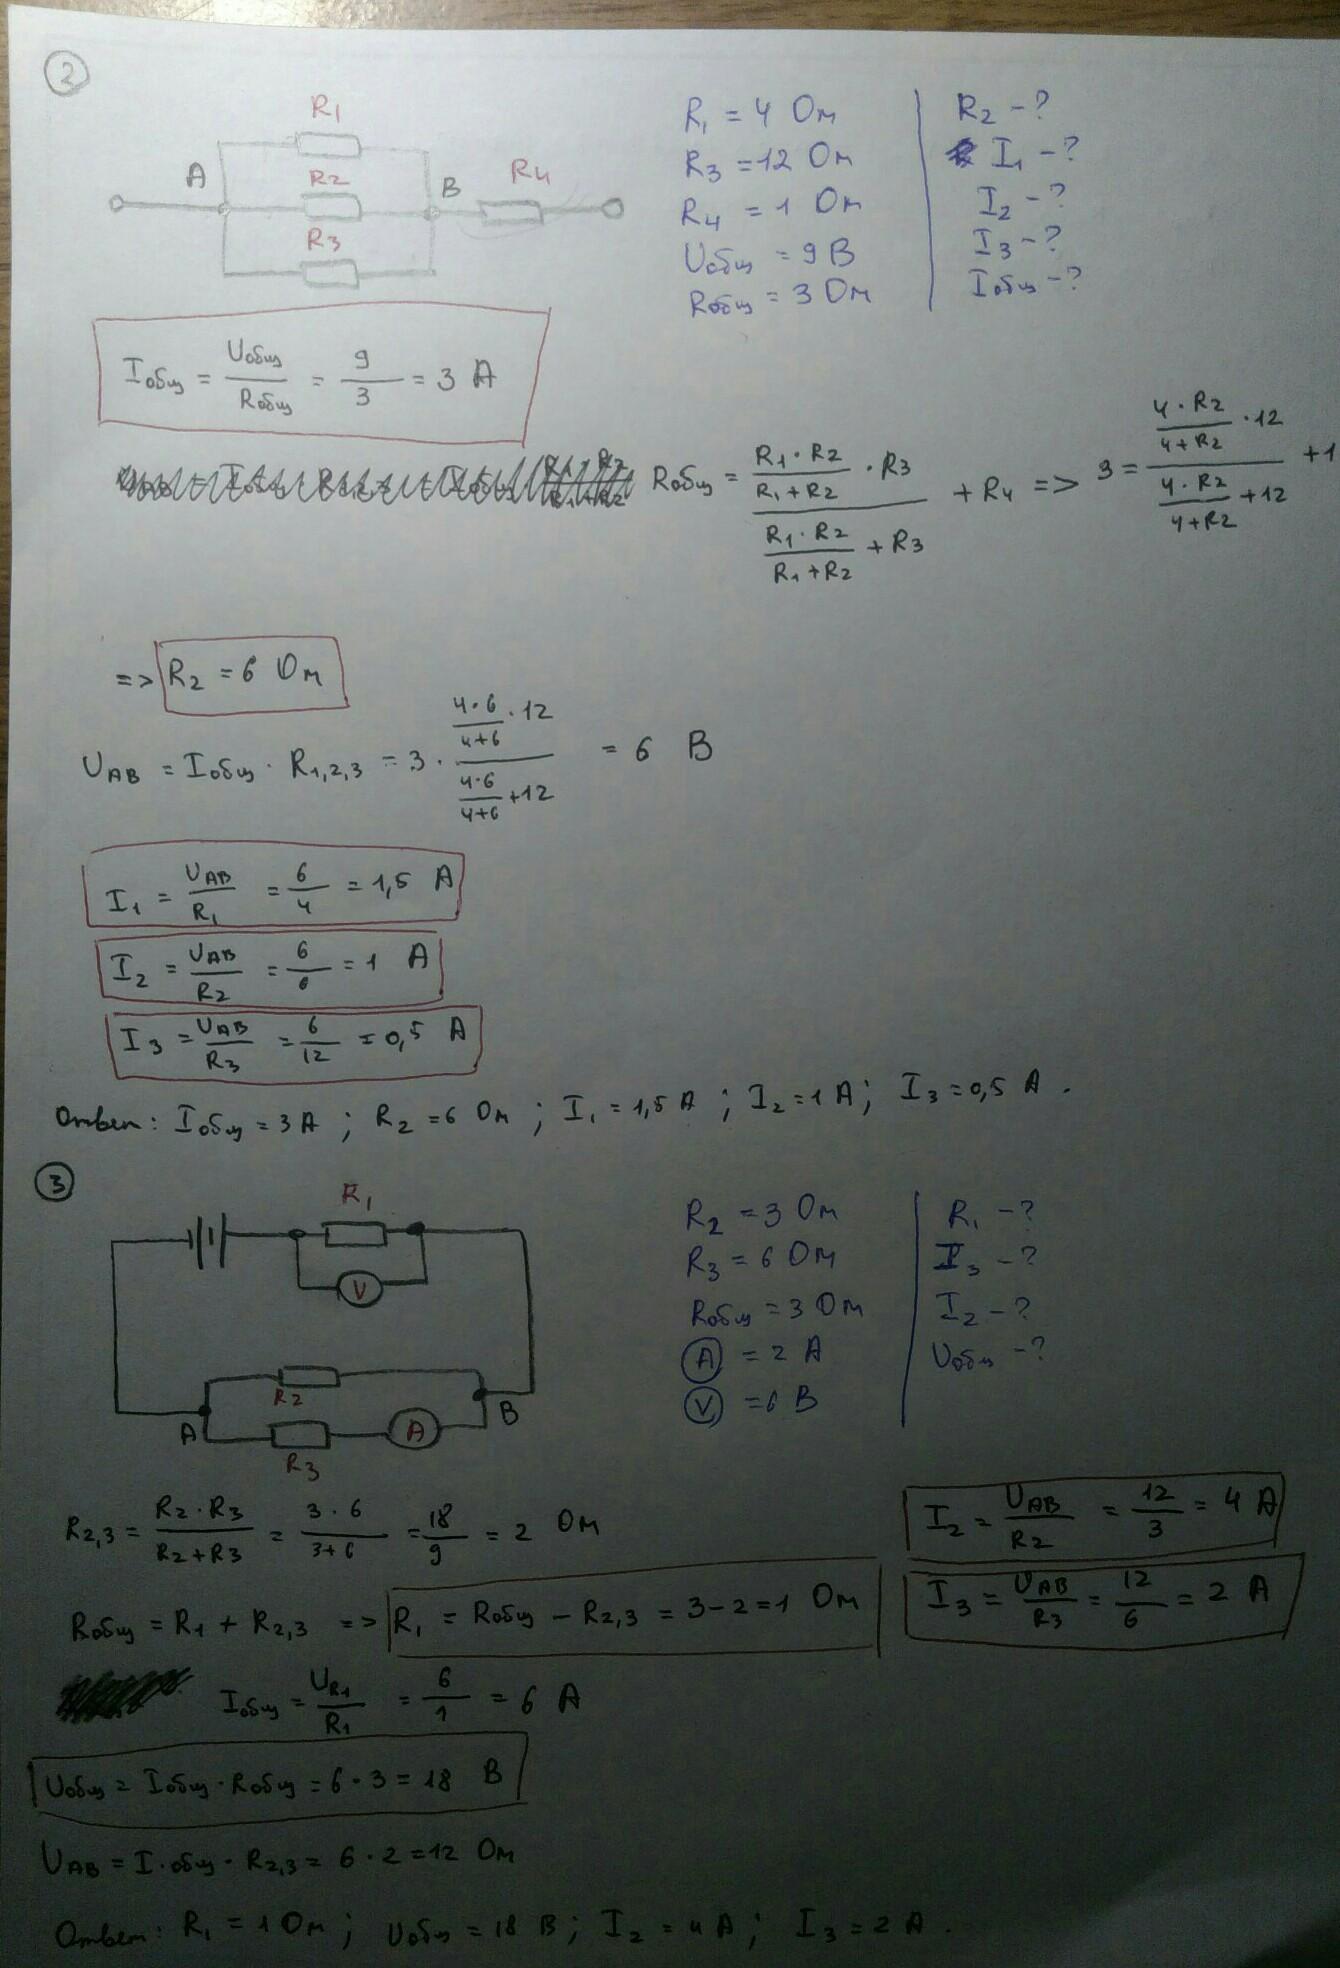 2
R1
A R2 B R4
R3
R1 = 4 Ом
R3 = 12 Ом
R4 = 1 Ом
Uобщ = 9 В
Rобщ = 3 Ом
R2 - ?
I1 - ?
I2 - ?
I3 - ?
Iобщ - ?
Iобщ = Uобщ/Rобщ = 9/3 = 3 А
Rобщ = ((R1·R2)/(R1+R2) · R3)/((R1·R2)/(R1+R2) + R3) + R4 => 3 = ((4·R2)/(4+R2) · 12)/((4·R2)/(4+R2) + 12) + 1
=> R2 = 6 Ом
UAB = Iобщ · R1,2,3 = 3 · ((4·6)/(4+6) · 12)/((4·6)/(4+6) + 12) = 6 В
I1 = UAB/R1 = 6/4 = 1,5 А
I2 = UAB/R2 = 6/6 = 1 А
I3 = UAB/R3 = 6/12 = 0,5 А
Ответ: Iобщ = 3 А ; R2 = 6 Ом ; I1 = 1,5 А ; I2 = 1 А ; I3 = 0,5 А .
3
R1
V
R2
A B
R3 A
R2 = 3 Ом
R3 = 6 Ом
Rобщ = 3 Ом
A = 2 А
V = 6 В
R1 - ?
I3 - ?
I2 - ?
Uобщ - ?
R2,3 = (R2·R3)/(R2+R3) = (3·6)/(3+6) = 18/9 = 2 Ом
Rобщ = R1 + R2,3 => R1 = Rобщ − R2,3 = 3 − 2 = 1 Ом
I2 = UAB/R2 = 12/3 = 4 А
I3 = UAB/R3 = 12/6 = 2 А
Iобщ = UR1/R1 = 6/1 = 6 А
Uобщ = Iобщ · Rобщ = 6 · 3 = 18 В
UAB = I·общ · R2,3 = 6 · 2 = 12 Ом
Ответ: R1 = 1 Ом ; Uобщ = 18 В ; I2 = 4 А ; I3 = 2 А .